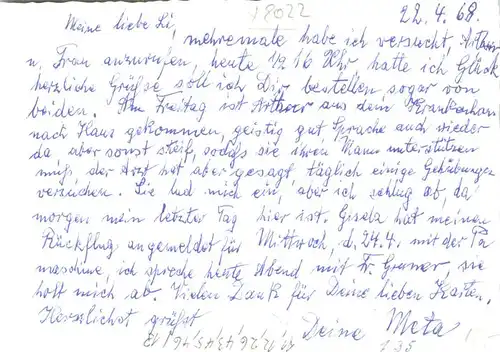 18022
22.4.68.
Meine liebe Li,
mehremale habe ich versucht, Arthur
u. Frau anzurufen, heute 1/2 16 Uhr hatte ich Glück
herzliche Grüße soll ich Dir bestellen sogar von
beiden. Am Freitag ist Arthur aus dem Krankenhaus
nach Haus gekommen, geistig gut, Sprache auch wieder
da aber sonst steif, sodaß sie ihren Mann unterstützen
muß, der Arzt hat aber gesagt, täglich einige Gehübungen
versuchen. Sie lud mich ein, aber ich schlug ab, da
morgen mein letzter Tag hier ist. Gisela hat meinen
Rückflug angemeldet für Mittwoch, d. 24.4. mit der
maschine, ich spreche heute Abend mit Fr. sie
holt mich ab. Vielen Dank für Deine lieben Karten,
Herzlichst grüßt
Deine Meta
135